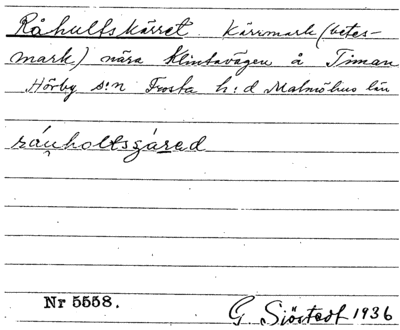 Råhultskärret Kärrmark (betes-
mark) nära Klintavägen å Timan
Hörby s:n Frosta h:d Malmöhus län
ráu̯holtsʒáred
Nr 5558.
G. Sjöstedt 1936